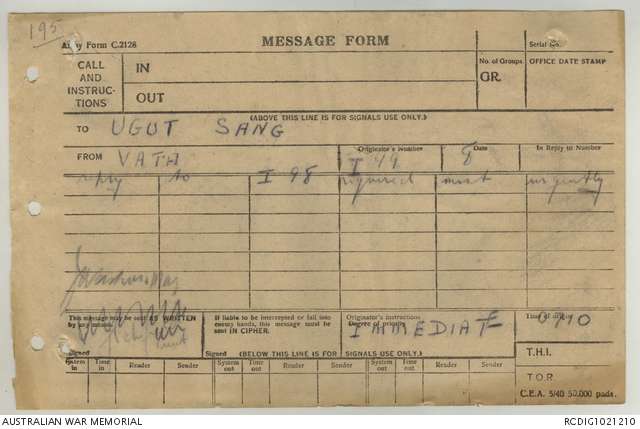 195
Army Form C.2128
MESSAGE FORM
Serial No.
CALL AND INSTRUCTIONS
IN
OUT
No. of Groups
GR.
OFFICE DATE STAMP
(ABOVE THIS LINE IS FOR SIGNALS USE ONLY.)
TO UGUT SANG
FROM VATH
Originator's Number I 49
Date 8
In Reply to Number
reply to I 98 required most urgently
This message may be sent AS WRITTEN by any means.
Signed
If liable to be intercepted or fall into enemy hands, this message must be sent IN CIPHER.
Signed
Originator's instructions Degree of priority
IMMEDIATE
Time of origin
0710
(BELOW THIS LINE IS FOR SIGNALS USE ONLY.)
T.H.I.
System in Time in Reader Sender System out Time out Reader Sender System out Time out Reader Sender
T.O.R.
C.E.A. 5/40 50,000 pads.
AUSTRALIAN WAR MEMORIAL
RCDIG1021210